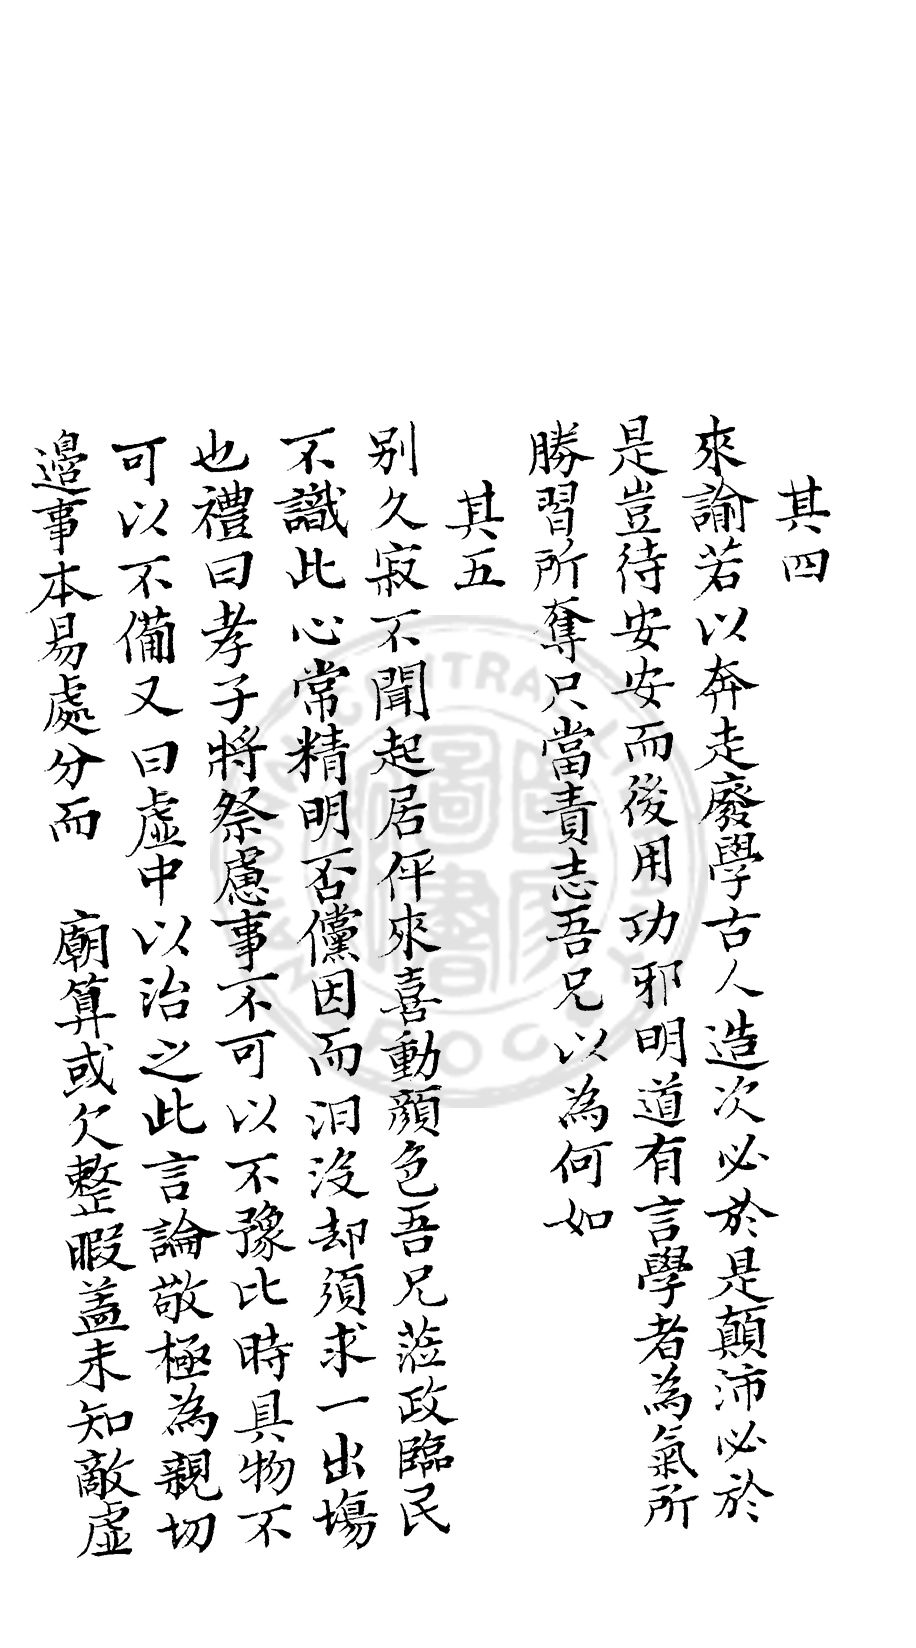 其四
來諭若以奔走廢學古人造次必於是顛沛必於
是豈待安安而後用功邪明道有言學者為氣所
勝習所奪只當責志吾兄以為何如
其五
别久寂不聞起居伻來喜動顔色吾兄蒞政臨民
不識此心常精明否儻因而汩沒却須求一出塲
也禮曰孝子將祭慮事不可以不豫比時具物不
可以不備又曰虛中以治之此言論敬極為親切
邉事本易處分而 廟算或欠整暇盖未知敵虛